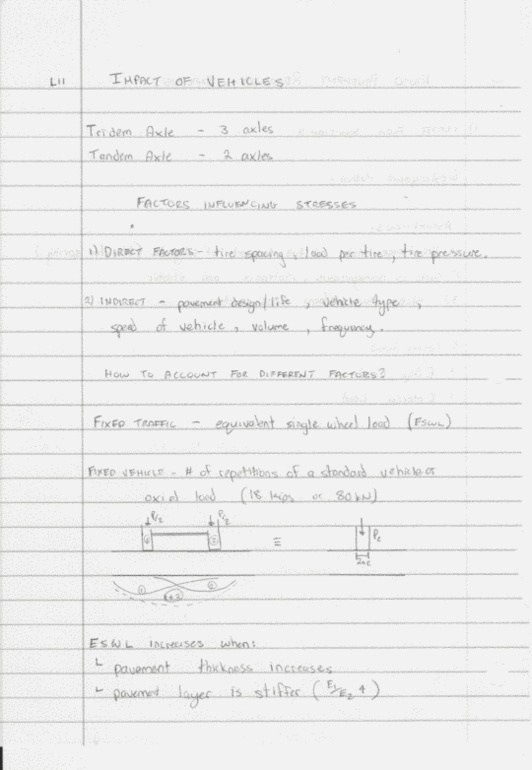 L11 IMPACT OF VEHICLES
Tridem Axle - 3 axles
Tandem Axle - 2 axles
FACTORS INFLUENCING STRESSES
1) DIRECT FACTORS - tire spacing, load per tire, tire pressure.
2) INDIRECT - pavement design/life, vehicle type,
speed of vehicle, volume, frequency.
HOW TO ACCOUNT FOR DIFFERENT FACTORS?
FIXED TRAFFIC - equivalent single wheel load (ESWL)
FIXED VEHICLE - # of repetitions of a standard vehicle or
axial load (18 kips or 80 kN)
P/2 P/2
① ② ≡ Pe
2ae
① ② 1+2
ESWL INCREASES WHEN:
└ pavement thickness increases
└ pavement layer is stiffer (E1/E2 ↑)